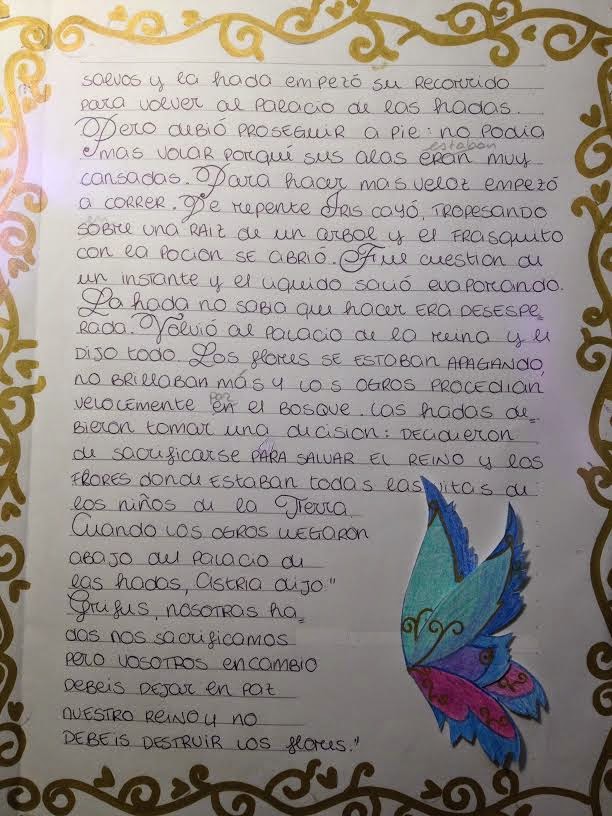 salvos y la hada empezó su recorrido
para volver al palacio de las hadas.
Pero debió proseguir a pie: no podia
estaban
mas volar porqué sus alas eran muy
cansadas. Para hacer mas veloz empezó
a correr. De repente Iris cayó, tropesando
en
sobre una raiz de un arbol y el frasquito
con la pocion se abrió. Fue cuestion de
un instante y el liquido salió evaporando.
La hada no sabia que hacer era desespe=
rada. Volvió al palacio de la reina y le
dijo todo. Los flores se estaban apagando,
no brillaban más y los ogros procedian
por
velocemente en el bosque. Las hadas de=
bieron tomar una decision: decidieron
de sacrificarse para salvar el reino y los
flores donde estaban todas las vitas de
los niños de la Tierra
Cuando los ogros llegaron
abajo del palacio de
las hadas, Astria dijo "
Grifus, nosotras ha=
das nos sacrificamos
pero vosotros en cambio
debeis dejar en paz
nuestro reino y no
debeis destruir los flores."